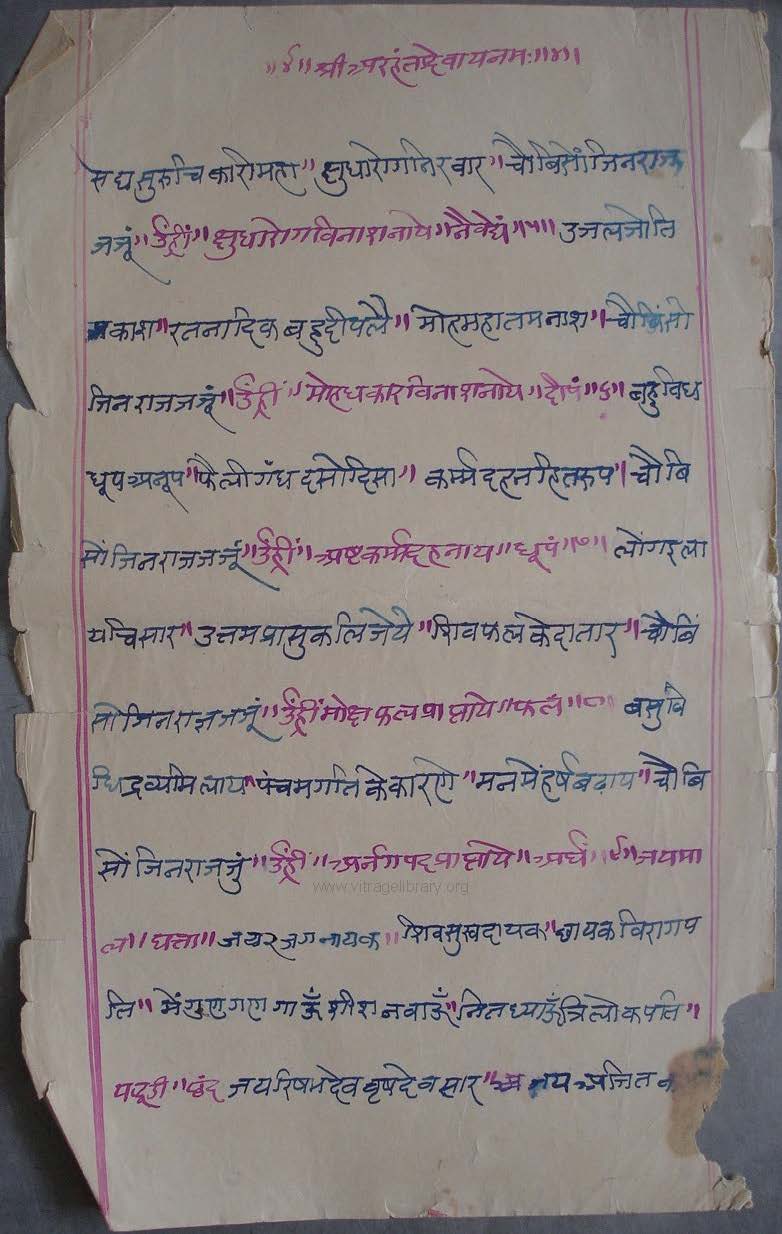 ॥र्ई॥ श्री अरहंतदेवायनमः॥४॥
सद्य सुरुचि कारीमहा॥ क्षुधारोगनिरवार॥ चौबिसोंजिनराज
जजूं॥ उँह्रीं॥ क्षुधारोगविनाशनाये॥ नैवेद्यं॥५॥ उजलजोति
प्रकाश॥ रतनादिक बहुदीपलै॥ मोहमहातमनाश॥ चौबिंसो
जिनराजजजूं॥ उँह्रीं॥ मोहधकारविनाशनाये॥ दीपं॥६॥ बहुविध
धूपअनूप॥ फैलीगंध दसोदिसा॥ कर्म्मदहनहितरूप॥ चौबि
सोंजिनराजजजूं॥ उँह्रीं॥ अष्टकर्म्मदहनाय॥ धूपं॥७॥ लोंगइला
यचिसार॥ उत्तमप्रासुकलिजेये॥ शिवफलकेदातार॥ चौबिं
सोजिनराजजजूं॥ उँह्रींमोक्षफलप्राप्ताये॥ फलं॥८॥ बसुवि
धिद्रव्यमिलाय॥ पंचमगतिकेकारणे॥ मनमेंहर्षबढाय॥ चौबि
सोंजिनराजजुं॥ उँह्रीं॥ अर्नगपदप्राप्ताये॥ अर्घं॥र्ई॥ जयमा
ल॥ घत्ता॥ जय२जगनायक॥ शिवसुखदायक॥ छायकविरागप
ति॥ मेंगुणगणगाऊँ शीशनवाऊँ॥ नितध्याऊँत्रिलोकपति॥
पद्दूडी॥ छंद जयरिषभदेववृषदेवसार॥ जयअजित
www.vitragelibrary.org